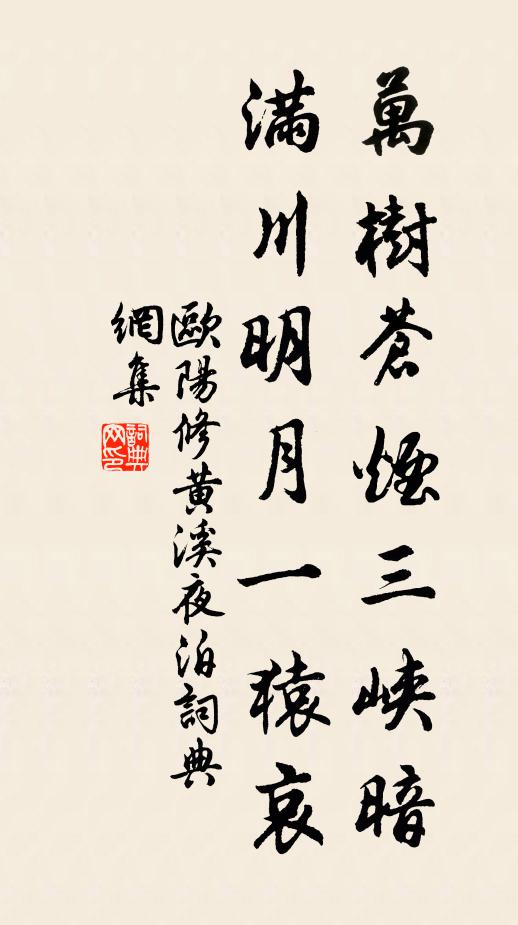 萬樹蒼煙三峽暗
滿川明月一猿哀
歐陽修黃溪夜泊詞典
網集
詞典
网印